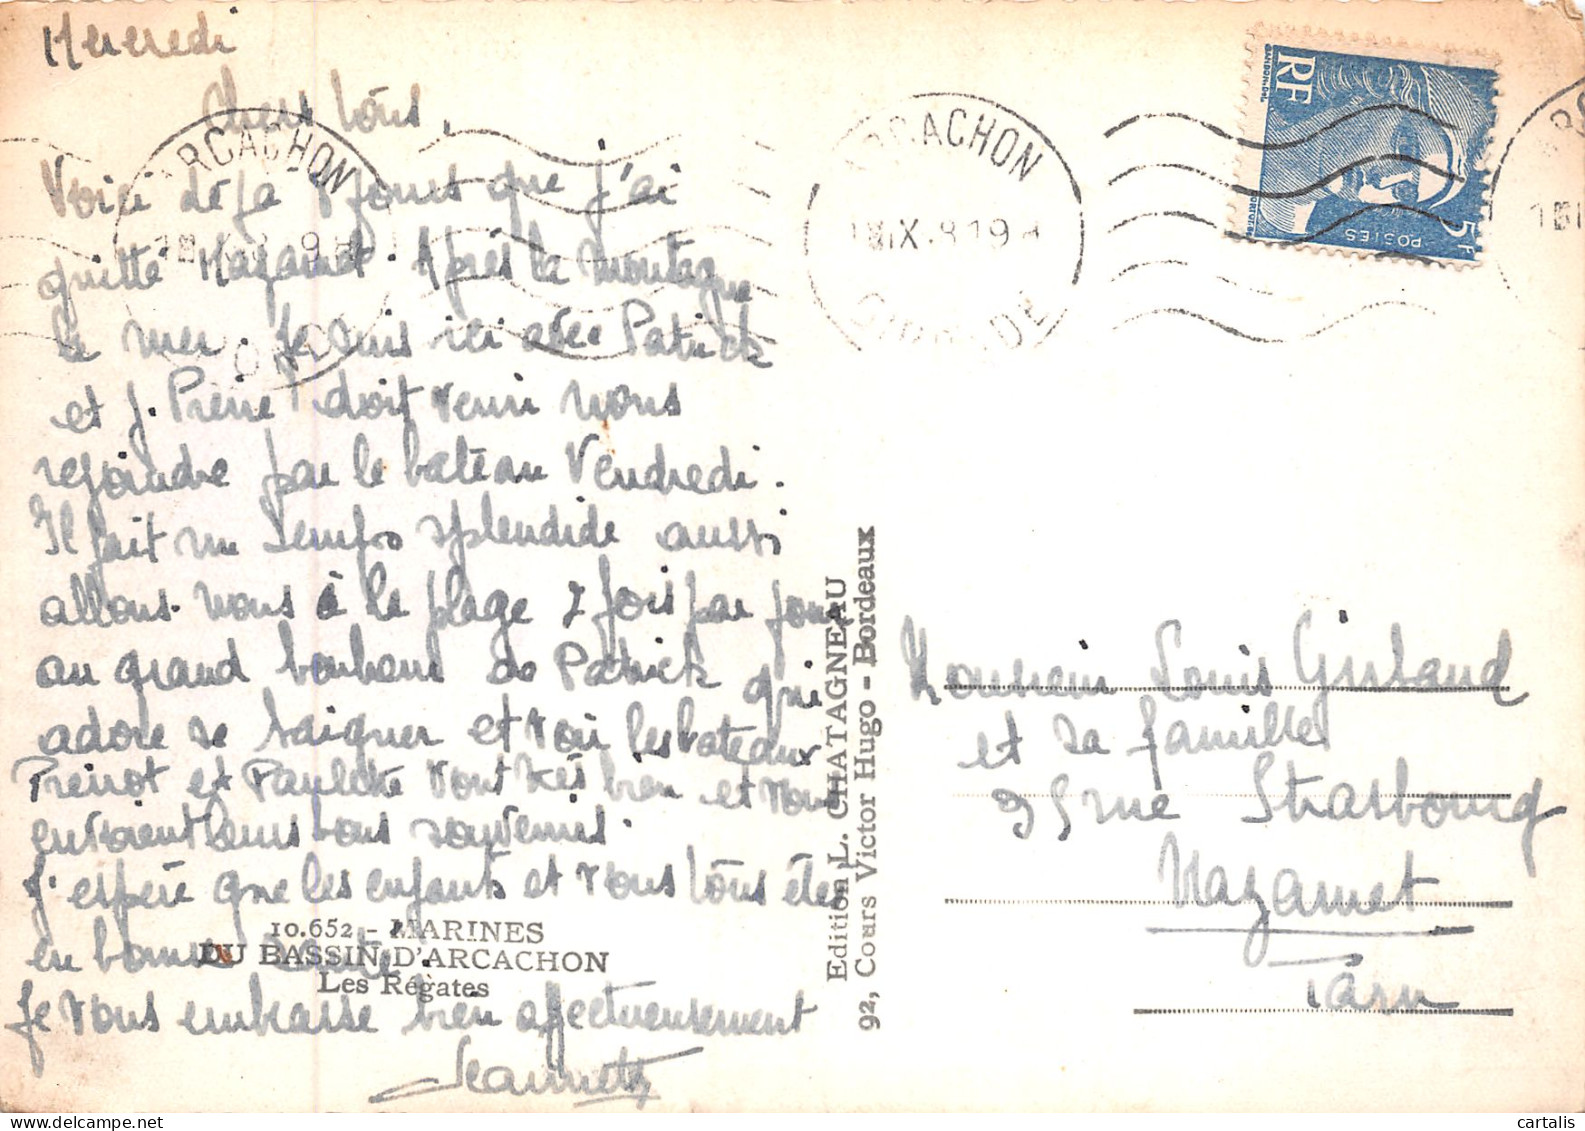 Mercredi
Chers tous,
Voici déjà jours que j'ai
quitté Mazamet. Après la montagne
la mer. Je suis ici avec Patrick
et J. Pierre doit venir nous
rejoindre par le bateau Vendredi.
Il fait un temps splendide aussi
allons-nous à la plage 2 fois par jour
au grand bonheur de Patrick qui
adore se baigner et voir les bateaux
Pierrot et Paulette vont très bien et vous
envoient leurs bons souvenirs.
J'espère que les enfants et vous tous êtes
en bonne santé.
Je vous embrasse bien affectueusement
Jeannette
10.652 - MARINES
DU BASSIN D'ARCACHON
Les Régates
Edition L. CHATAGNEAU
92, Cours Victor Hugo - Bordeaux
ARCACHON
GIRONDE
RF
5F
POSTES
Monsieur Louis
et sa famille
95 rue Strasbourg
Mazamet
Tarn
cartalis